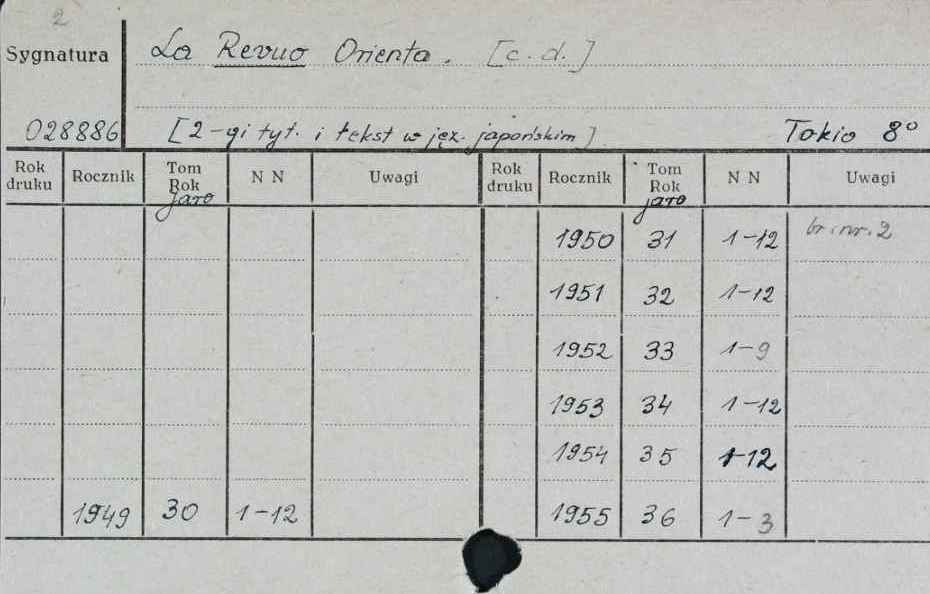 2
Sygnatura La Revuo Orienta. [c.d.]
028886 [2-gi tyt. i tekst w jęz. japońskim] Tokio 8°
Rok druku Rocznik Tom Rok jaro N N Uwagi Rok druku Rocznik Tom Rok jaro N N Uwagi
1950 31 1-12 br. nr. 2
1951 32 1-12
1952 33 1-9
1953 34 1-12
1954 35 1-12
1949 30 1-12 1955 36 1-3